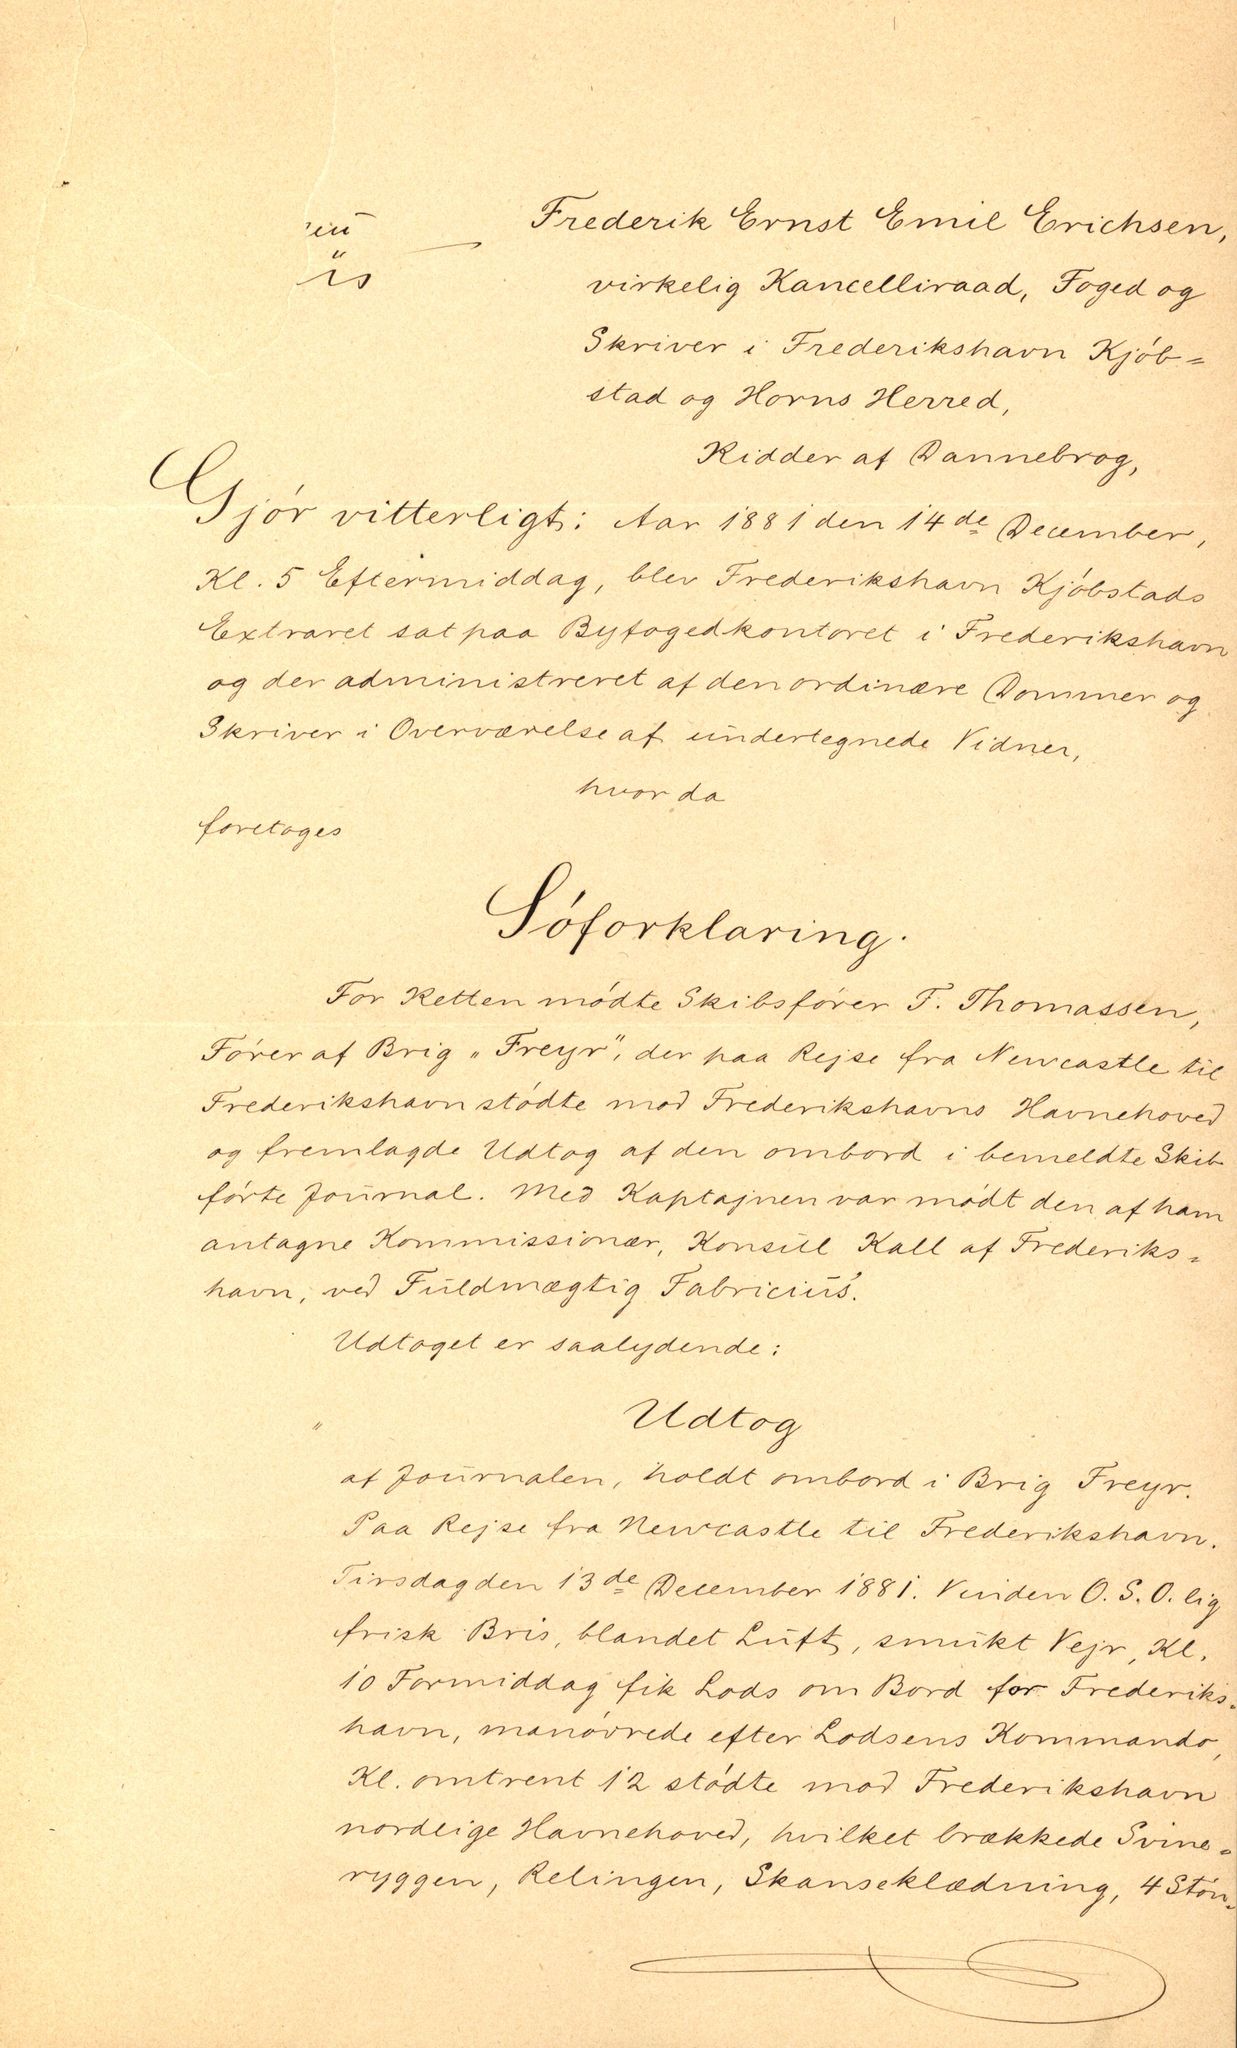 Frederik Ernst Emil Erichsen,
virkelig Kancelliraad, Foged og
Skriver i Frederikshavn Kjób=
stad og Horns Herred,
Ridder af Dannebrog,
Gjór vitterligt: Aar 1881 den 14de December,
Kl. 5 Eftermiddag, blev Frederikshavn Kjóbstads
Extraret sat paa Byfogedkontoret i Frederikshavn
og der administreret af den ordinære Dommer og
Skriver i Overværelse af undertegnede Vidner,
hvor da
foretoges
Sóforklaring.
For Retten módte Skibsfórer F. Thomassen,
Fórer af Brig „Freyr", der paa Rejse fra Newcastle til
Frederikshavn stódte mod Frederikshavns Havnehoved
og fremlagde Udtog af den ombord i bemeldte Skib
fórte Journal. Med Kaptajnen var módt den af ham
antagne Kommissionær, Konsul Kall af Frederiks=
havn, ved Fuldmægtig Fabricius.
Udtoget er saalydende:
" Udtog
af Journalen, holdt ombord i Brig Freyr.
Paa Rejse fra Newcastle til Frederikshavn.
Tirsdag den 13de December 1881. Vinden O. S. O. lig
frisk Bris, blandet Luft, smukt Vejr, Kl.
10 Formiddag fik Lods om Bord for Frederiks=
havn, manóvrede efter Lodsens Kommando,
Kl. omtrent 12 stódte mod Frederikshavn
nordlige Havnehoved, hvilket brækkede Svine=
ryggen, Relingen, Skanseklædning, 4 Stón=